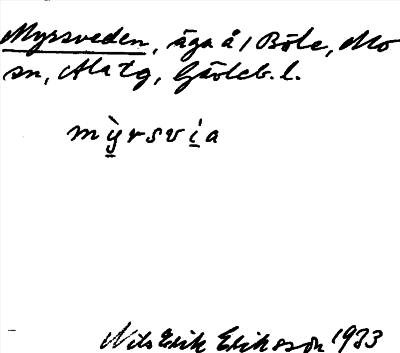 Myrsveden, äga å/Böle, Mo
sn, Ala tg, Gävleb. l.
mỳrsvia
Nils Erik Eriksson 1933